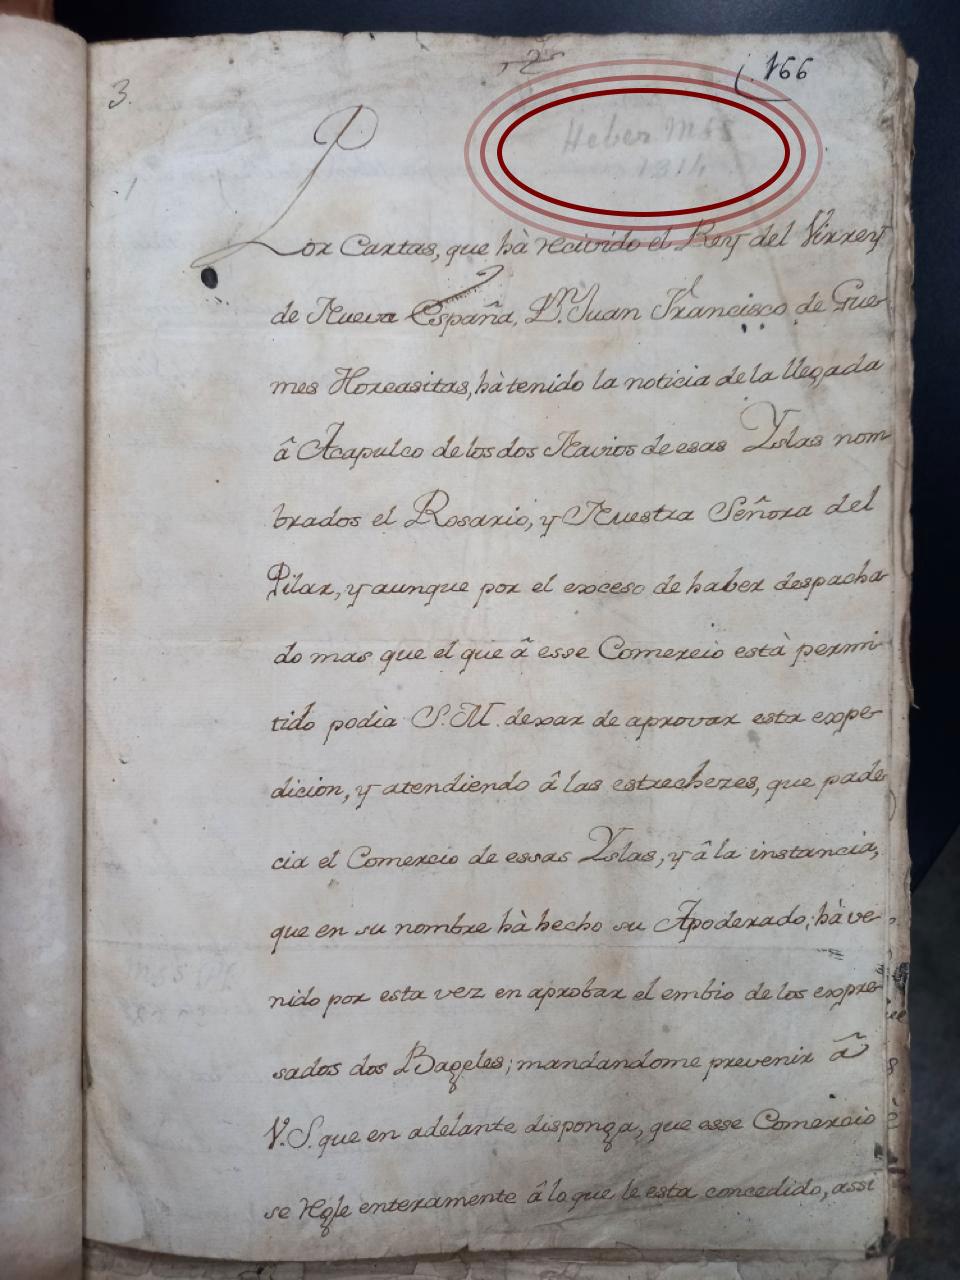 3.
166
Heber MSS
1314
Por Cartas, que hà recivido el Rey del Virrey
de Nueva España, Dn. Juan Francisco de Gue-
mes Horcasitas, hà tenido la noticia de la llegada
â Acapulco de los dos Navios de esas Yslas nom-
brados el Rosario, y Nuestra Señora del
Pilar, y aunque por el exceso de haber despacha-
do mas que el que â esse Comercio està permi-
tido podia S. M. dexar de aprovar esta expe-
dicion, y atendiendo â las estrecheses, que pade-
cia el Comercio de essas Yslas, y â la instancia,
que en su nombre hà hecho su Apoderado, hà ve-
nido por esta vez en aprobar el embio de los expre-
sados dos Bageles; mandandome prevenir â
V. S. que en adelante disponga, que esse Comercio
se regle enteramente â lo que le esta concedido, assi